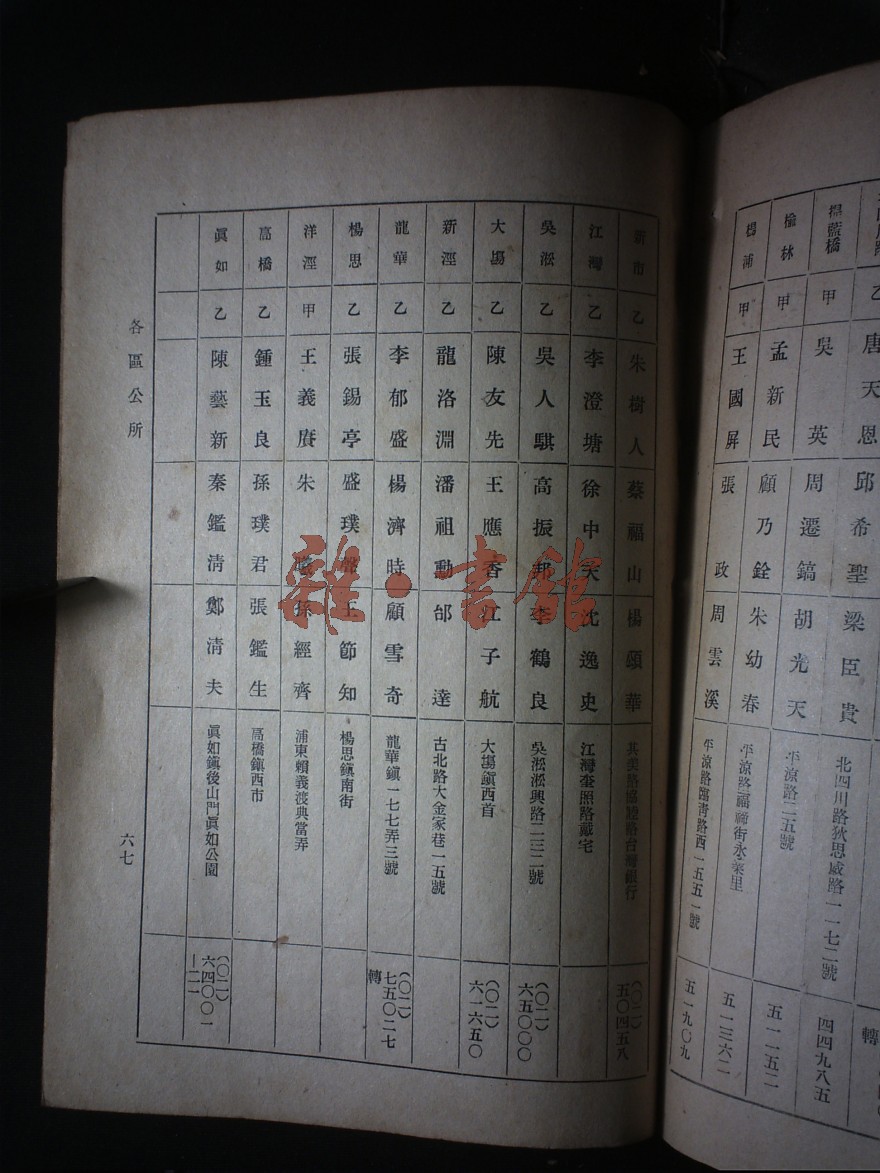 唐天恩 邱希聖 梁臣貴 北四川路狄思威路一一七二號
提籃橋 甲 吳英 周遷鎬 胡光天 平涼路二五號 四四九八五
榆林 甲 孟新民 顧乃銓 朱幼春 平涼路福禄街永業里 五一二五二
楊浦 甲 王國屏 張政 周雲溪 平涼路臨青路西一五五一號 五一三六二
五一九〇九
轉
新市 乙 朱樹人 蔡福山 楊頌華 其美路 台灣銀行 (〇二) 五〇四五八
江灣 乙 李澄塘 徐中天 沈逸史 江灣奎照路戴宅
吳淞 乙 吳人騏 高振邦 李鶴良 吳淞淞興路二三二號 (〇二) 六五〇〇〇
大場 乙 陳友先 王應香 江子航 大場鎮西首 (〇二) 六一六五〇
新涇 乙 龍洛淵 潘祖動 邰達 古北路大金家巷一五號
龍華 乙 李郁盛 楊濟時 顧雪奇 龍華鎮一七七弄三號 (〇二) 七五〇二七 轉
楊思 乙 張錫亭 盛璞 王節知 楊思鎮南街
洋涇 甲 王義賡 朱 孫經齊 浦東賴義渡典當弄
高橋 乙 鍾玉良 孫璞君 張鑑生 高橋鎮西市
眞如 乙 陳藝新 秦鑑清 鄭清夫 眞如鎮後山門眞如公園 (〇二) 六四〇〇一 —二一
各區公所
六七
雜·書館